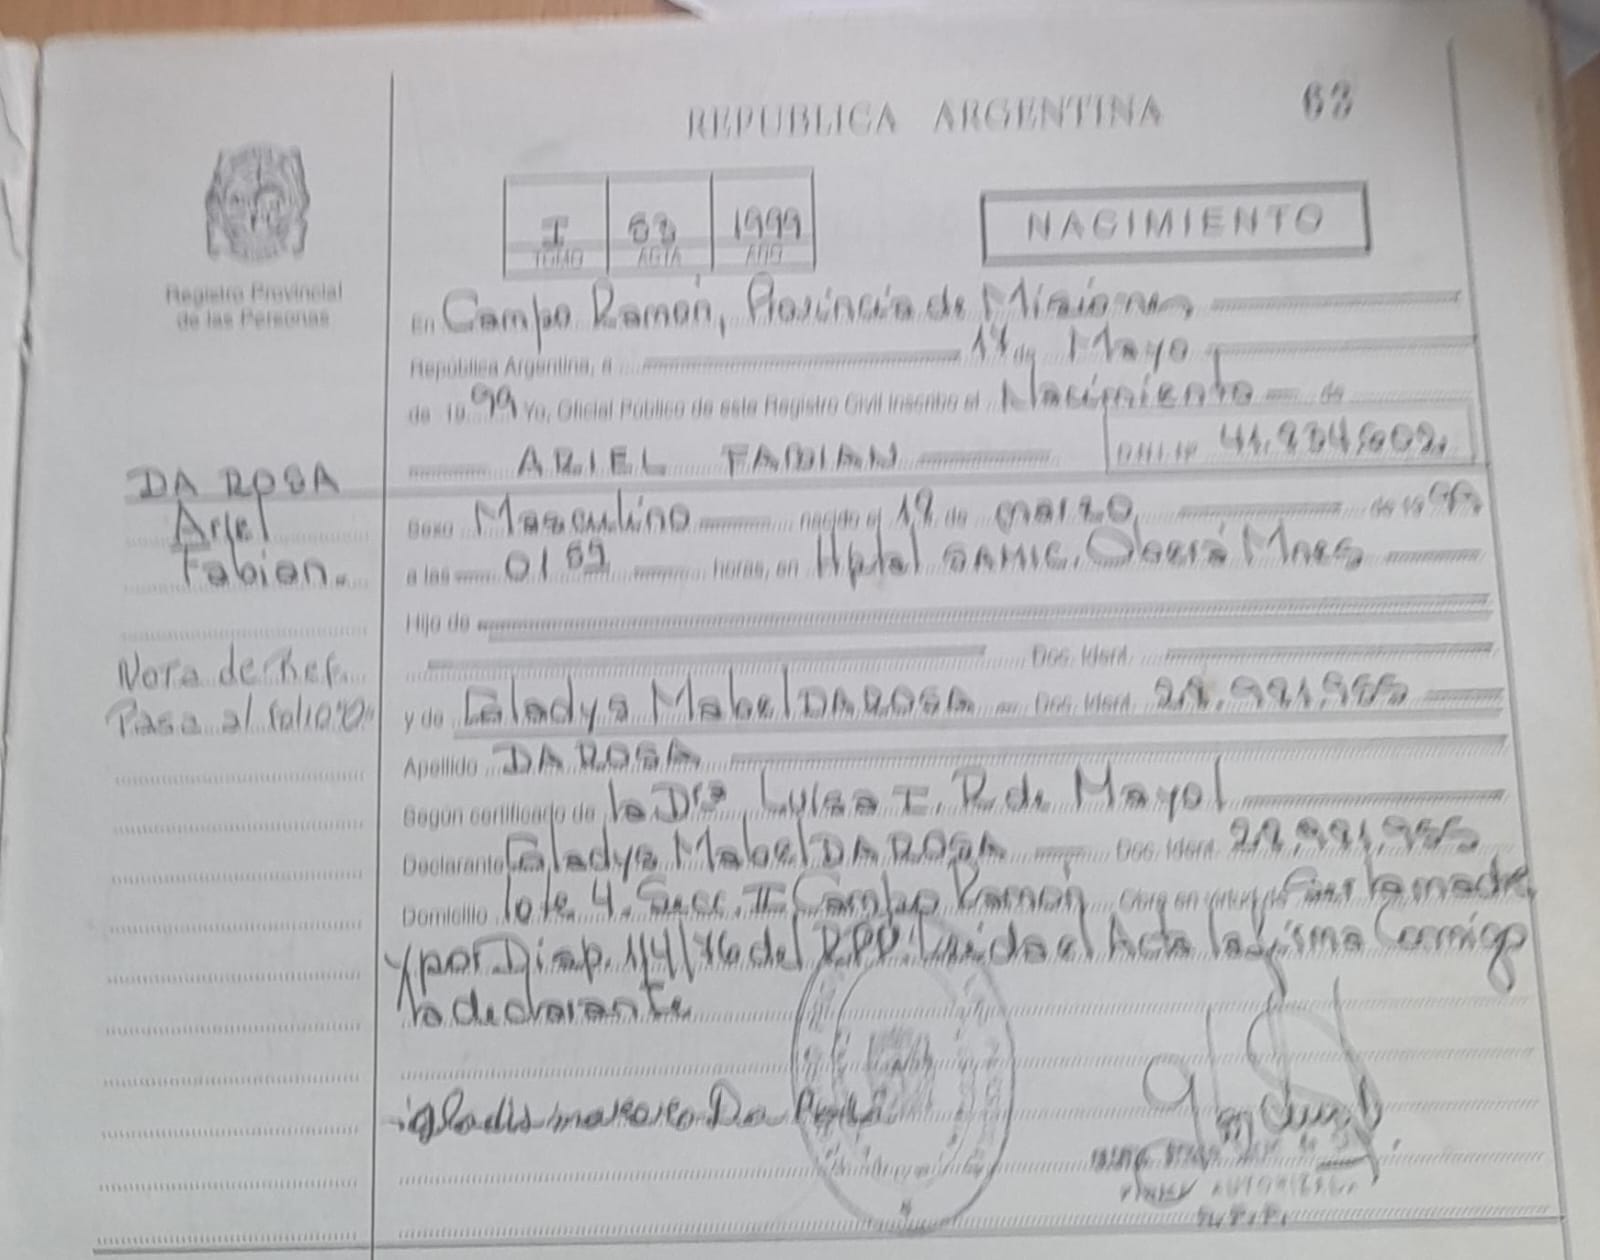 REPUBLICA ARGENTINA
63
Registro Provincial
de las Personas
I 63 1999
TOMO ACTA AÑO
NACIMIENTO
En Campo Ramón, Provincia de Misiones
República Argentina, a 17 de Mayo
de 19 99 Yo, Oficial Público de este Registro Civil inscribo el Nacimiento de
ARIEL FABIAN
Sexo Masculino nacido el de marzo de 19 99
a las horas, en Hptal SAMIC. Oberá Mnes
Hijo de
Doc. Ident.
y de Gladys Mabel DA ROSA Doc. Ident.
Apellido DA ROSA
Según certificado de la Dra Luisa I. R. de Mayol
Declarante Gladys Mabel DA ROSA Doc. Ident.
Domicilio lote 4. Secc. II Campo Ramón la madre
y por Disp. 114/76 del R.P.P. Leída el Acta la firma Conmigo
la declarante
DA ROSA
Ariel
Fabian.
Nota de Ref.
Pasa al folio
Da Rosa